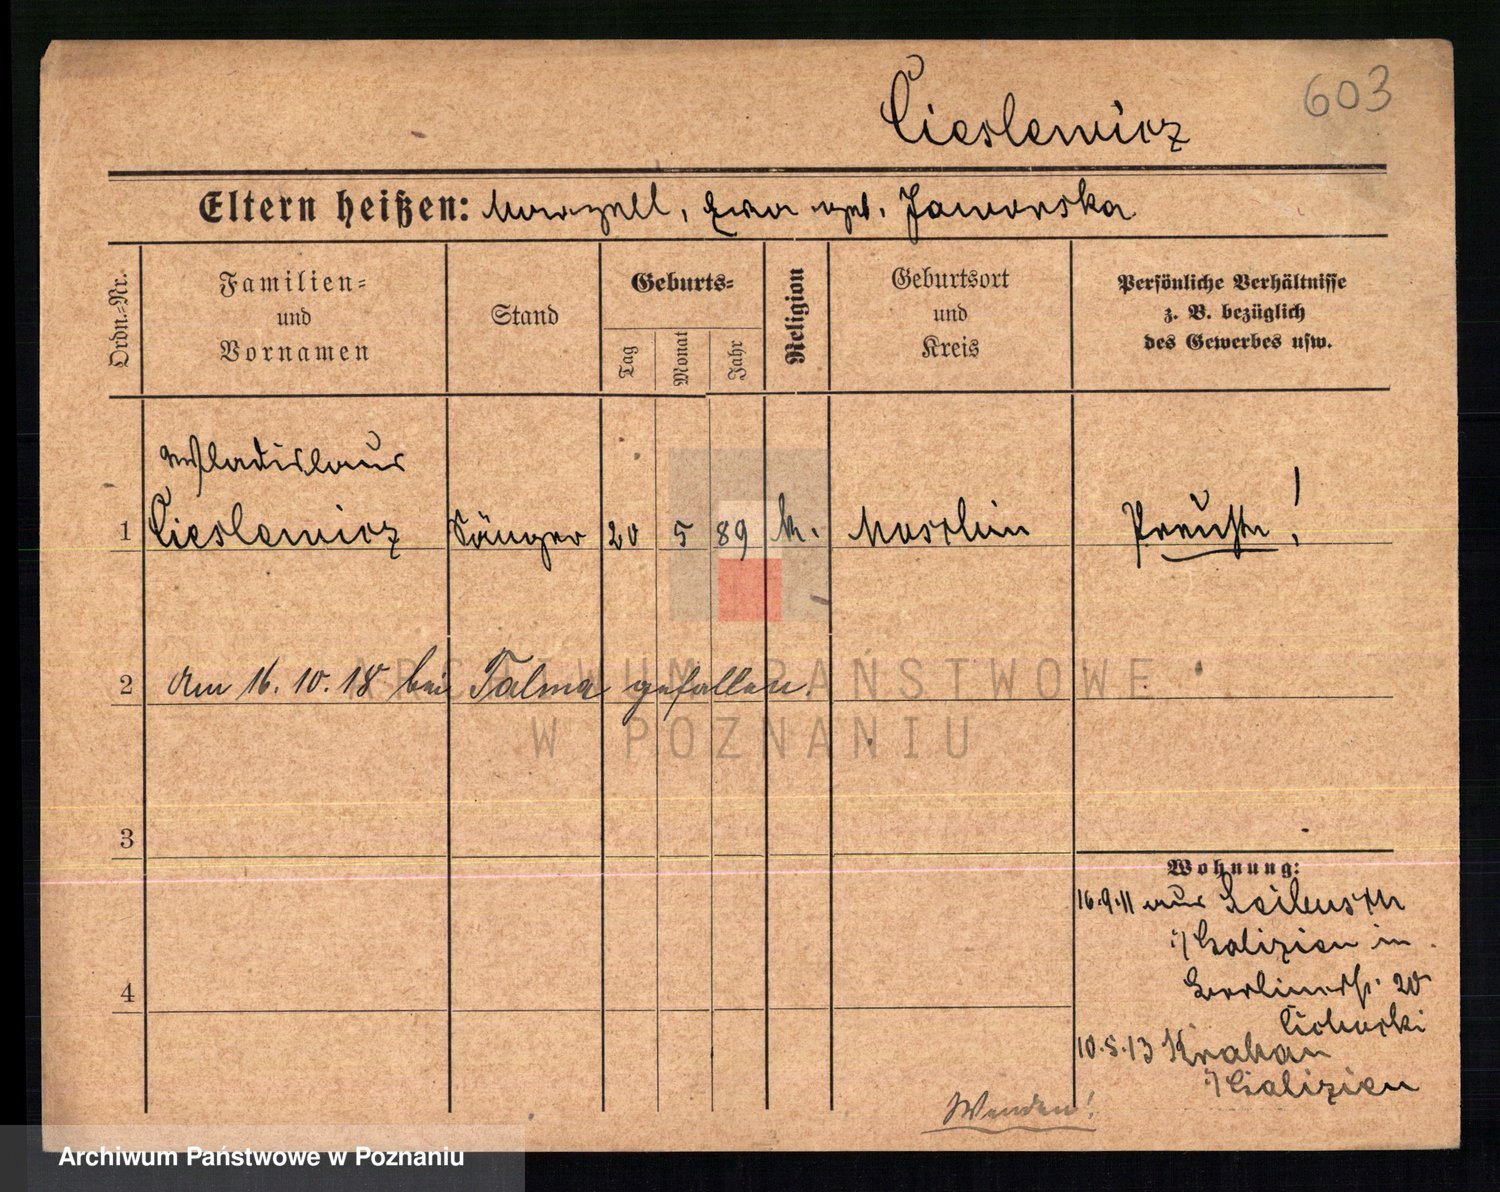 603
Cieslewicz
Eltern heißen: Marzell, Ewa geb. Jaworska
Ordn.-Nr.
Familien-
und
Vornamen
Stand
Geburts-
Tag
Monat
Jahr
Religion
Geburtsort
und
Kreis
Persönliche Verhältnisse
z. B. bezüglich
des Gewerbes usw.
Wladislaus
1 Cieslewicz Sänger 20 5 89 k. Moschin Preuße!
2 Am 16.10.18 bei Talma gefallen.
3
Wohnung:
16.9.11 aus
i/Galizien in
4 Berlinerstr. 20
Cichocki
10.5.13 Krakau
i/Galizien
Wenden!
ARCHIWUM PAŃSTWOWE
W POZNANIU
Archiwum Państwowe w Poznaniu